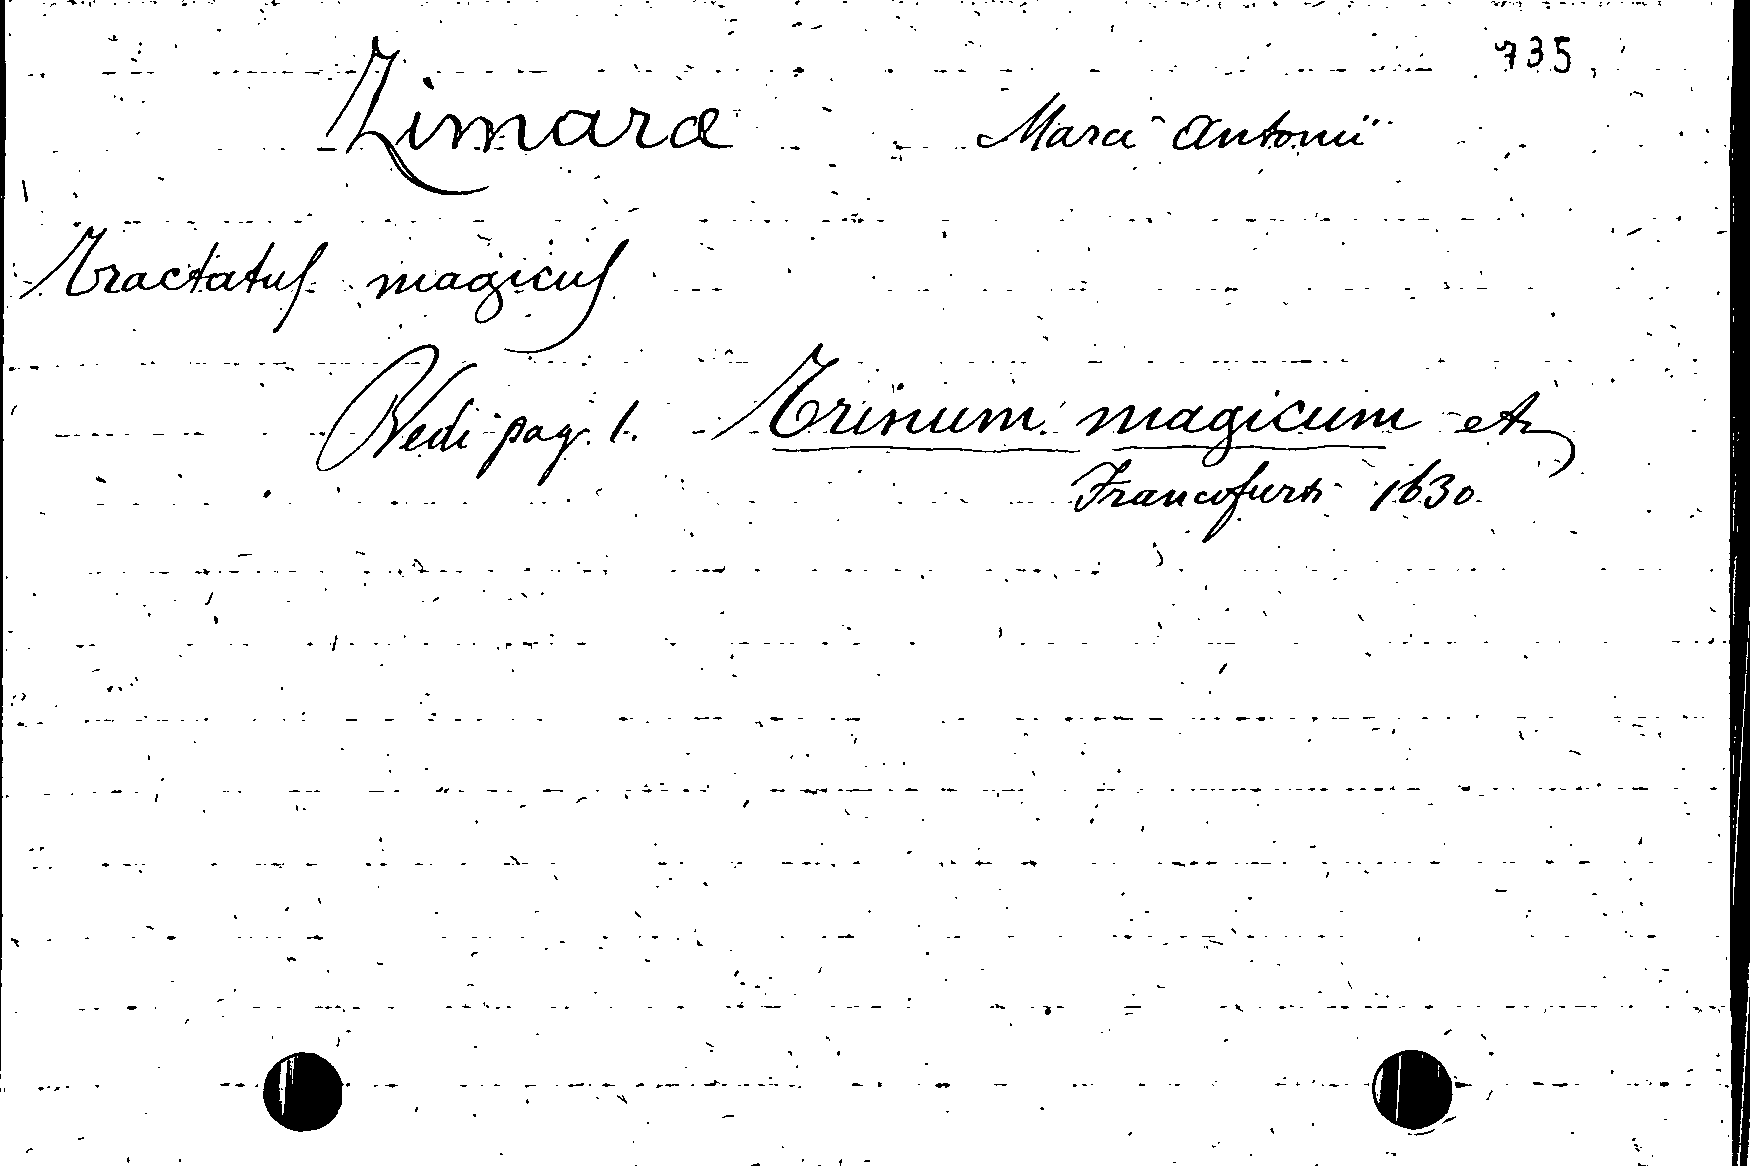 735
Zimaræ Marci Antonii
Tractatus magicus
Vedi pag. 1. Trinum magicum etc
Francofurti 1630